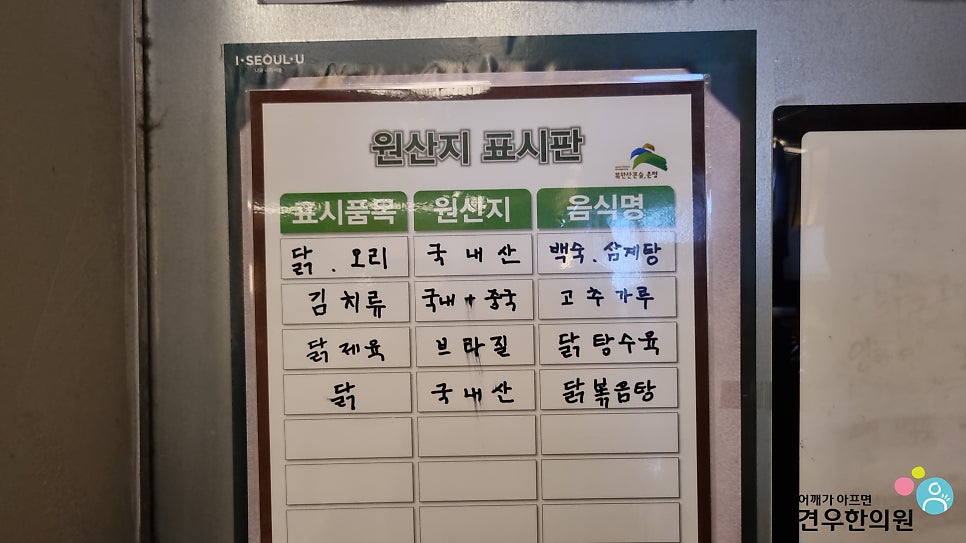 I·SEOUL·U
원산지 표시판
북한산큰숲,은평
표시품목 원산지 음식명
닭 . 오리 국내산 백숙.삼계탕
김치류 국내+중국 고추가루
닭제육 브라질 닭탕수육
닭 국내산 닭볶음탕
어깨가 아프면
견우한의원